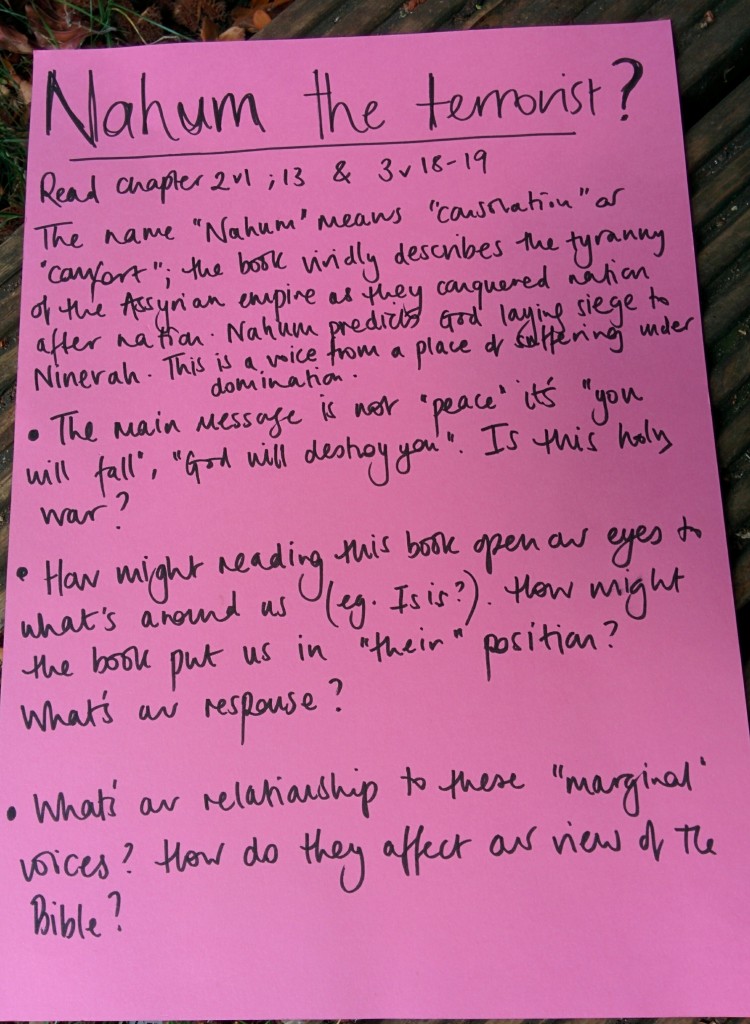 Nahum the terrorist?
Read chapter 2v1 ; 13 & 3v18-19
The name "Nahum" means "consolation" or
"comfort"; the book vividly describes the tyranny
of the Assyrian empire as they conquered nation
after nation. Nahum predicts God laying siege to
Ninevah. This is a voice from a place of suffering under
domination.
• The main message is not "peace" it's "you
will fall", "God will destroy you". Is this holy
war?
• How might reading this book open our eyes to
what's around us (eg. Isis?). How might
the book put us in "their" position?
What's our response?
• What's our relationship to these "marginal"
voices? How do they affect our view of The
Bible?